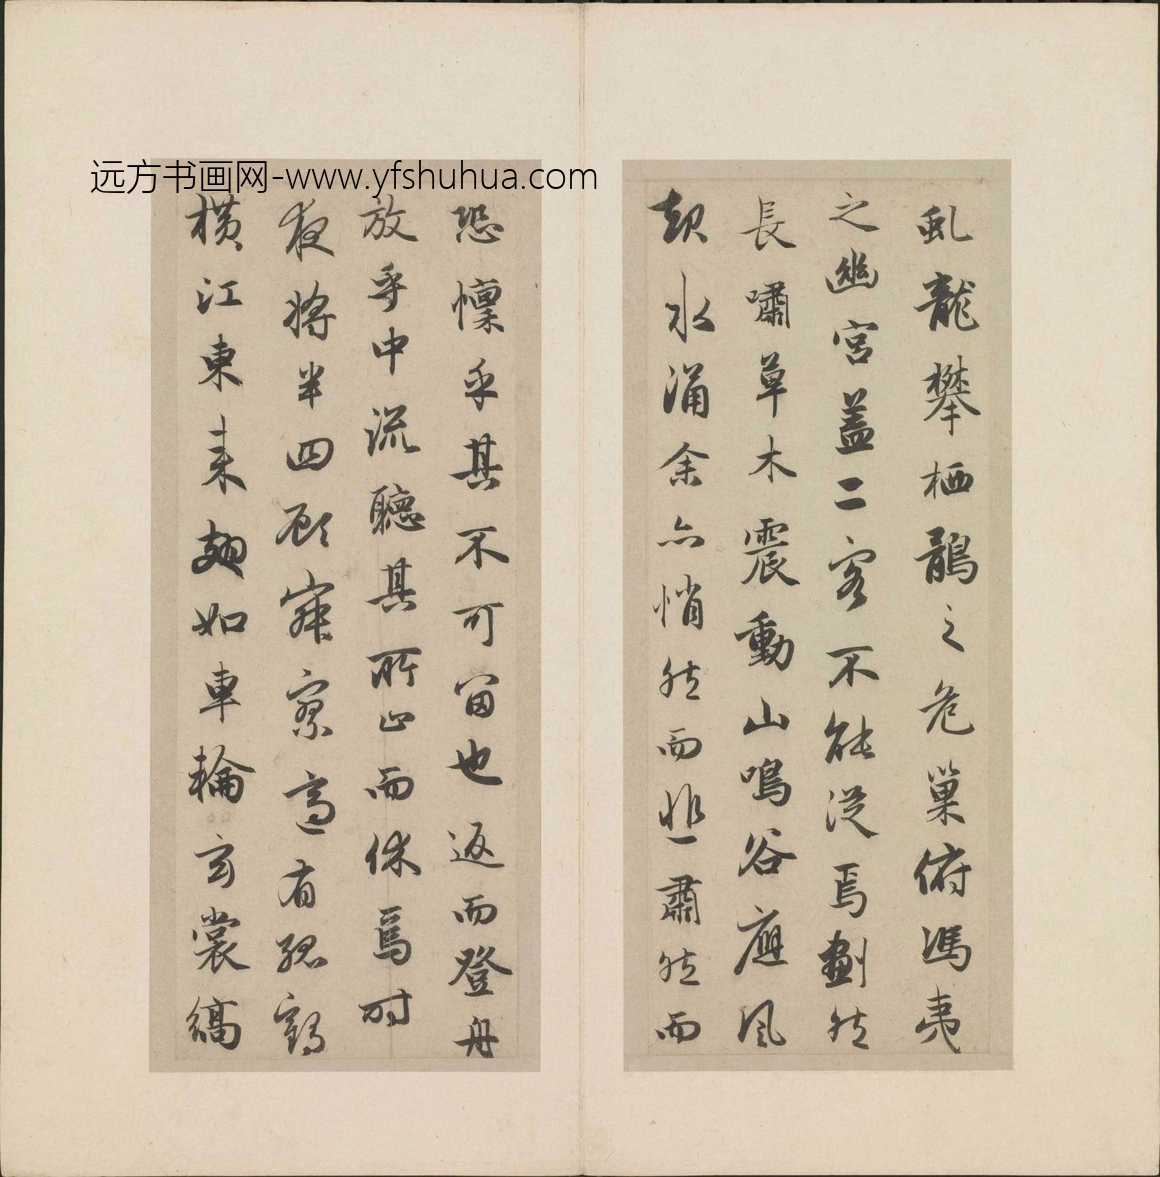 远方书画网-www.yfshuhua.com
虬龍攀栖鶻之危巢俯馮夷
之幽宮盖二客不能從焉劃然
長嘯草木震動山鳴谷應風
起水涌余亦悄然而悲肅然而
恐懍乎其不可留也返而登舟
放乎中流聽其所止而休焉时
夜將半四顧寂寥適有孤鶴
橫江東来翅如車輪玄裳縞